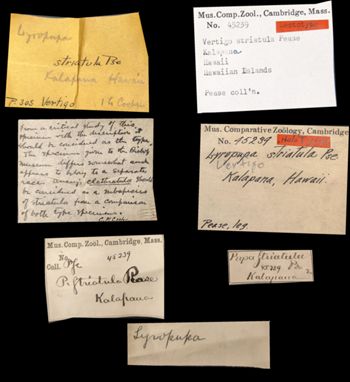 Lyropupa
striatula Pse
Kalapana Hawaii
P. 305 Vertigo
Mus.Comp.Zool., Cambridge, Mass.
No. 45239
Lectotype
Vertigo striatula Pease
Kalapana
Hawaii
Hawaiian Islands
Pease coll'n.
From a critical study of this
specimen with the description it
should be considered as the type.
The specimen given to the Bishop
Museum differs somewhat and
appears to belong to a separate
race. Among clathratula should
be considered as a subspecies
of striatula from a comparison
of both type specimens.
C.M.Cooke
Mus. Comparative Zoölogy, Cambridge
No. 45239
Lyropupa striatula Pse
Vertigo
Kalapana, Hawaii.
Pease, leg.
Mus. Comp. Zool., Cambridge, Mass.
No. 45239
Coll. Pse
P. striatula Pease
Kalapana
Pupa striatula
45239 Pse
Kalapana
Lyropupa